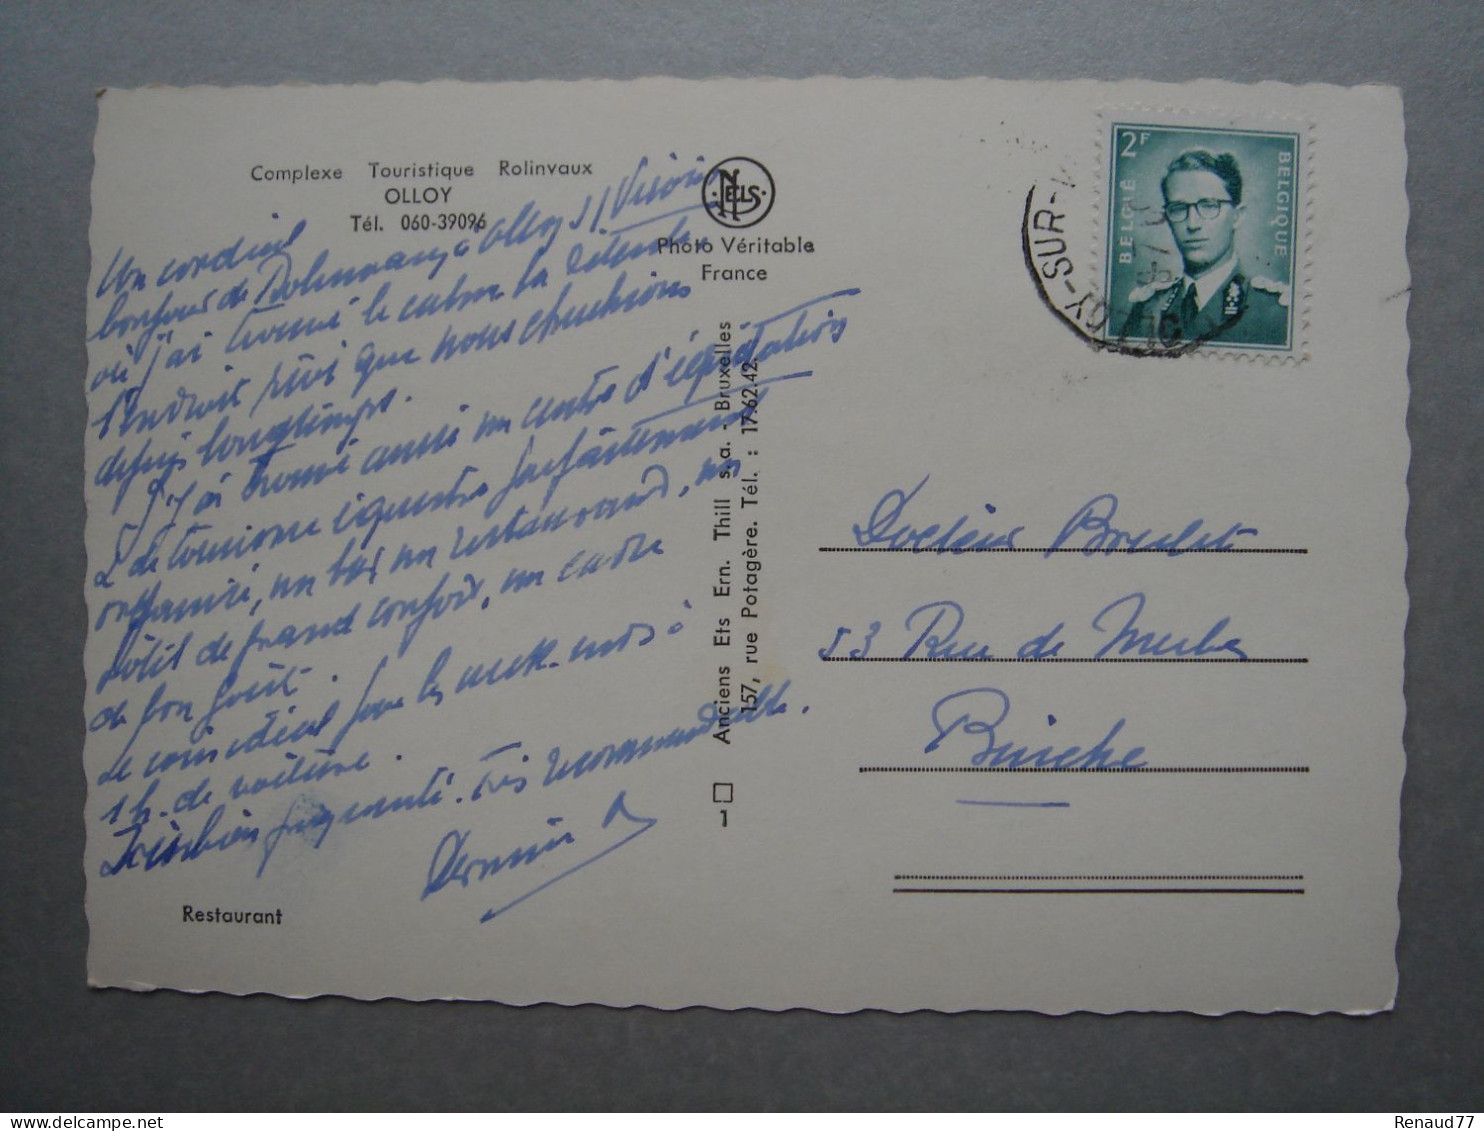 Complexe Touristique Rolinvaux
OLLOY
Tél. 060-39096
NELS
Photo Véritable
France
Un cordial
bonjour de Rolinvaux à Olloy s/Viroin
où j'ai trouvé le calme la détente
l'endroit rêvé que nous cherchions
depuis longtemps.
J'y ai trouvé aussi un centre d'équitation
& de tourisme équestre parfaitement
organisé, un bar un restaurant, un
hôtel de grand confort, un cadre
de bon goût.
Le coin idéal pour les week-ends à
1 h. de voiture.
Très bien fréquenté. Très recommandable.
Restaurant
Anciens Ets Ern. Thill s.a. - Bruxelles
157, rue Potagère. Tél. : 17.62.42.
1
2F
BELGIË
BELGIQUE
OLLOY-SUR-V
Docteur Broulet
53 Rue de Merbes
Binche
Renaud77